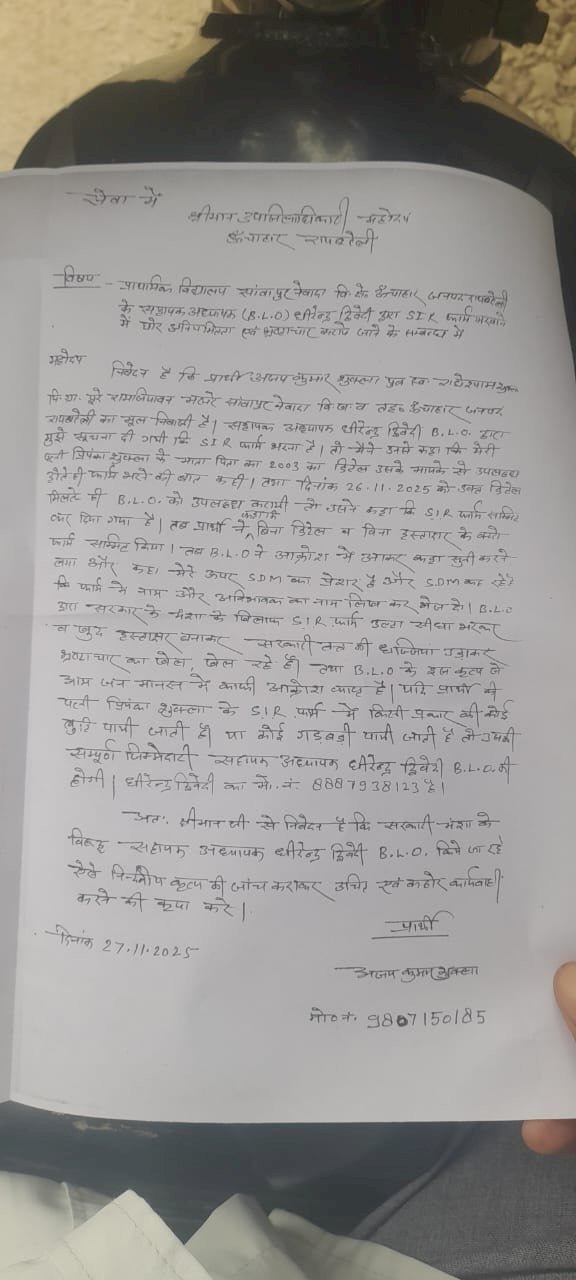 सेवा में
श्रीमान उपजिलाधिकारी महोदय
ऊँचाहार रायबरेली
विषय - प्राथमिक विद्यालय सांवापुर नेवादा वि.क्षे. ऊँचाहार जनपद रायबरेली
के सहायक अध्यापक (B.L.O) धीरेन्द्र द्विवेदी द्वारा S I R फार्म भरवाने
में घोर अनियमितता एवं भ्रष्टाचार करते जाने के सम्बन्ध में
महोदय
निवेदन है कि प्रार्थी अजय कुमार शुक्ला पुत्र स्व. राधेश्याम शुक्ला
नि.ग्रा. पूरे रामजियावन मजरे सांवापुर नेवादा वि.ख. व तह० ऊँचाहार जनपद
रायबरेली का मूल निवासी है। सहायक अध्यापक धीरेन्द्र द्विवेदी B.L.O. द्वारा
मुझे सूचना दी गयी कि S I R फार्म भरना है। तो मैंने उनसे कहा कि मेरी
पत्नी प्रियंका शुक्ला के माता पिता का 2003 का डिटेल उसके मायके से उपलब्ध
होते ही फार्म भरने की बात कही। तथा दिनांक 26.11.2025 को उक्त डिटेल
मिलते ही B.L.O. को उपलब्ध करायी तो उसने कहा कि S.I.R फार्म सबमिट
कर दिया गया है। तब प्रार्थी ने कहा कि बिना डिटेल व बिना हस्ताक्षर के क्यों
फार्म सबमिट किया। तब B.L.O ने आक्रोश में आकर कहा सुनी करने
लगा और कहा मेरे ऊपर SDM का प्रेशर है और SDM कह रहे हैं
कि फार्म में नाम और अभिभावक का नाम लिख कर भेज दो। B.L.O
द्वारा सरकार के मंशा के खिलाफ S.I.R फार्म उल्टा सीधा भरकर
व खुद हस्ताक्षर बनाकर सरकारी तंत्र की धज्जिया उड़ाकर
भ्रष्टाचार का खेल, खेल रहे हैं। तथा B.L.O के इस कृत्य से
आम जन मानस में काफी आक्रोश व्याप्त है। यदि प्रार्थी की
पत्नी प्रियंका शुक्ला के S.I.R फार्म में किसी प्रकार की कोई
त्रुटि पायी जाती है। या कोई गड़बड़ी पायी जाती है तो उसकी
सम्पूर्ण जिम्मेदारी सहायक अध्यापक धीरेन्द्र द्विवेदी B.L.O. की
होगी। धीरेन्द्र द्विवेदी का मो. नं. 8887938123 है।
अतः श्रीमान जी से निवेदन है कि सरकारी मंशा के
विरूद्ध सहायक अध्यापक धीरेन्द्र द्विवेदी B.L.O. किये जा रहे
ऐसे निन्दनीय कृत्य की जांच कराकर उचित एवं कठोर कार्यवाही
करने की कृपा करें।
दिनांक 27.11.2025
प्रार्थी
अजय कुमार शुक्ला
मो० नं. 9807150185